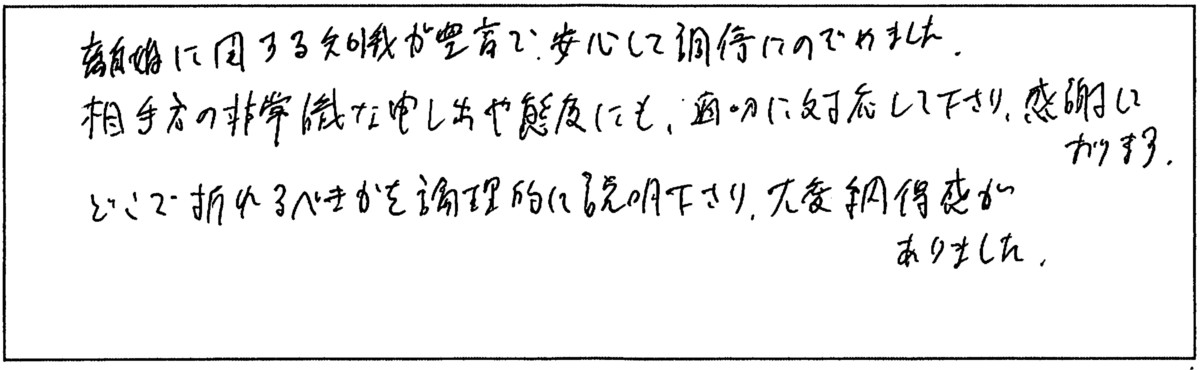 離婚に関する知識が豊富で、安心して調停にのぞめました。
相手方の非常識な申し出や態度にも、適切に対応して下さり、感謝して
おります。
どこで折れるべきかを論理的に説明下さり、大変納得感が
ありました。